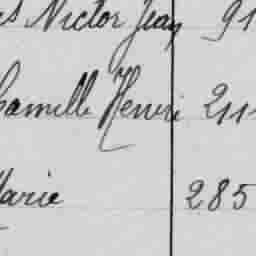 s Victor Jean 91
Camille Henri 211
Marie 285